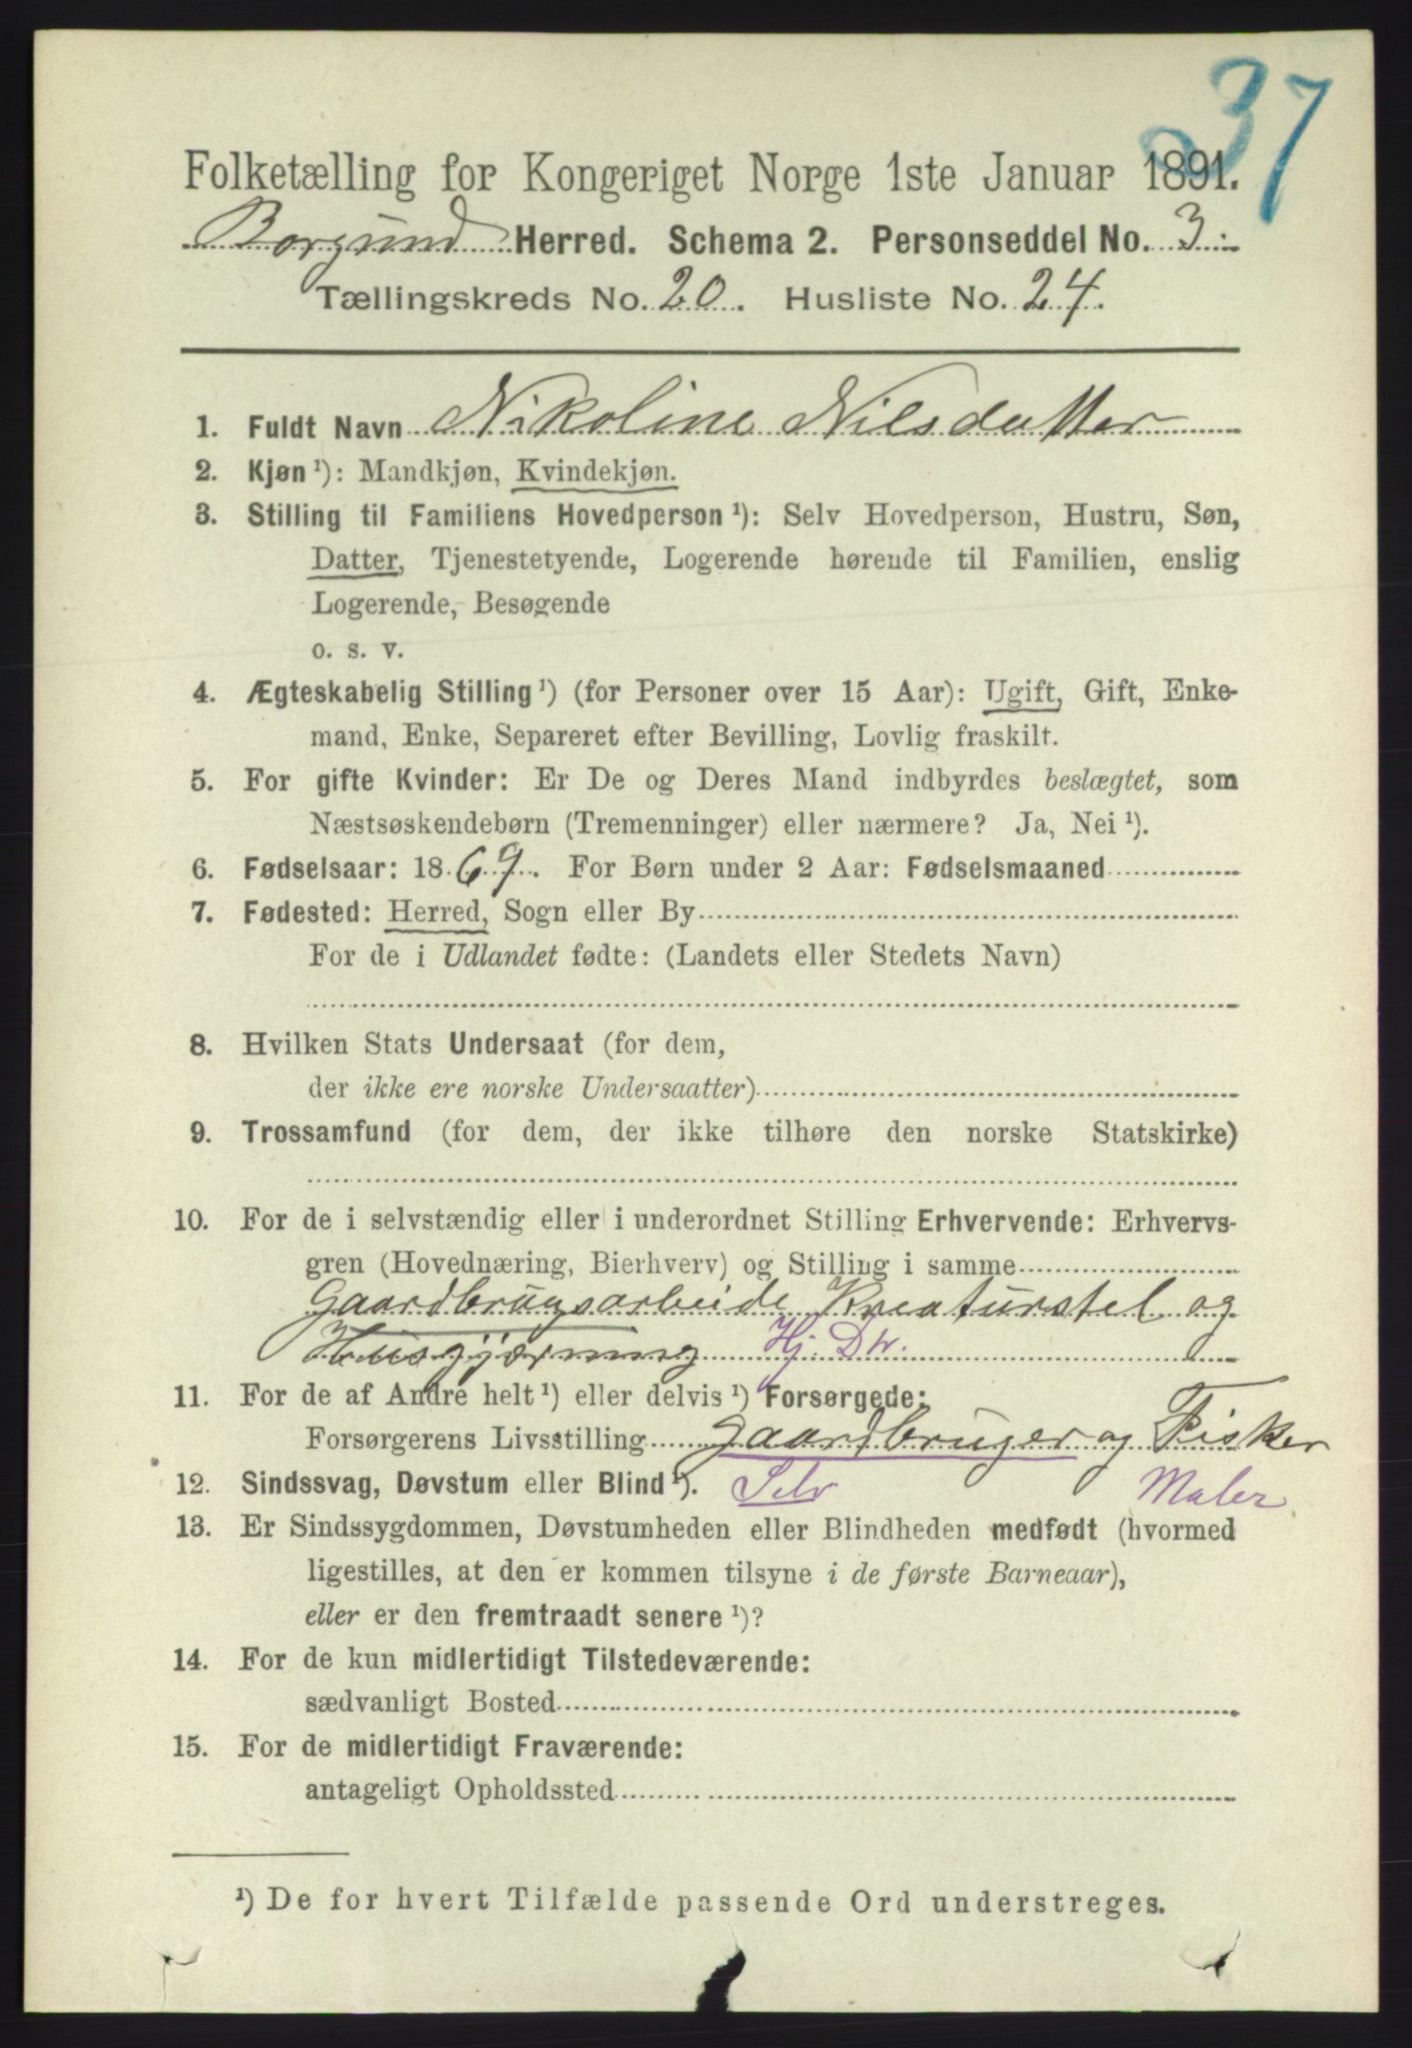 37
Folketælling for Kongeriget Norge 1ste Januar 1891.
Borgund Herred. Schema 2. Personseddel No. 3.
Tællingskreds No. 20. Husliste No. 24.
1. Fuldt Navn Nikoline Nilsdatter
2. Kjøn ¹): Mandkjøn, Kvindekjøn.
3. Stilling til Familiens Hovedperson ¹): Selv Hovedperson, Hustru, Søn,
Datter, Tjenestetyende, Logerende hørende til Familien, enslig
Logerende, Besøgende
o. s. v.
4. Ægteskabelig Stilling ¹) (for Personer over 15 Aar): Ugift, Gift, Enke-
mand, Enke, Separeret efter Bevilling, Lovlig fraskilt.
5. For gifte Kvinder: Er De og Deres Mand indbyrdes beslægtet, som
Næstsøskendebørn (Tremenninger) eller nærmere? Ja, Nei ¹).
6. Fødselsaar: 1869. For Børn under 2 Aar: Fødselsmaaned
7. Fødested: Herred, Sogn eller By
For de i Udlandet fødte: (Landets eller Stedets Navn)
8. Hvilken Stats Undersaat (for dem,
der ikke ere norske Undersaatter)
9. Trossamfund (for dem, der ikke tilhøre den norske Statskirke)
10. For de i selvstændig eller i underordnet Stilling Erhvervende: Erhvervs-
gren (Hovednæring, Bierhverv) og Stilling i samme
Gaardbrugsarbeide Kreaturstel og
Husgjærning Hj. Dtr.
11. For de af Andre helt ¹) eller delvis ¹) Forsørgede:
Forsørgerens Livsstilling Gaardbruger og Fisker
12. Sindssvag, Døvstum eller Blind ¹). Selv Maler
13. Er Sindssygdommen, Døvstumheden eller Blindheden medfødt (hvormed
ligestilles, at den er kommen tilsyne i de første Barneaar),
eller er den fremtraadt senere ¹)?
14. For de kun midlertidigt Tilstedeværende:
sædvanligt Bosted
15. For de midlertidigt Fraværende:
antageligt Opholdssted
¹) De for hvert Tilfælde passende Ord understreges.